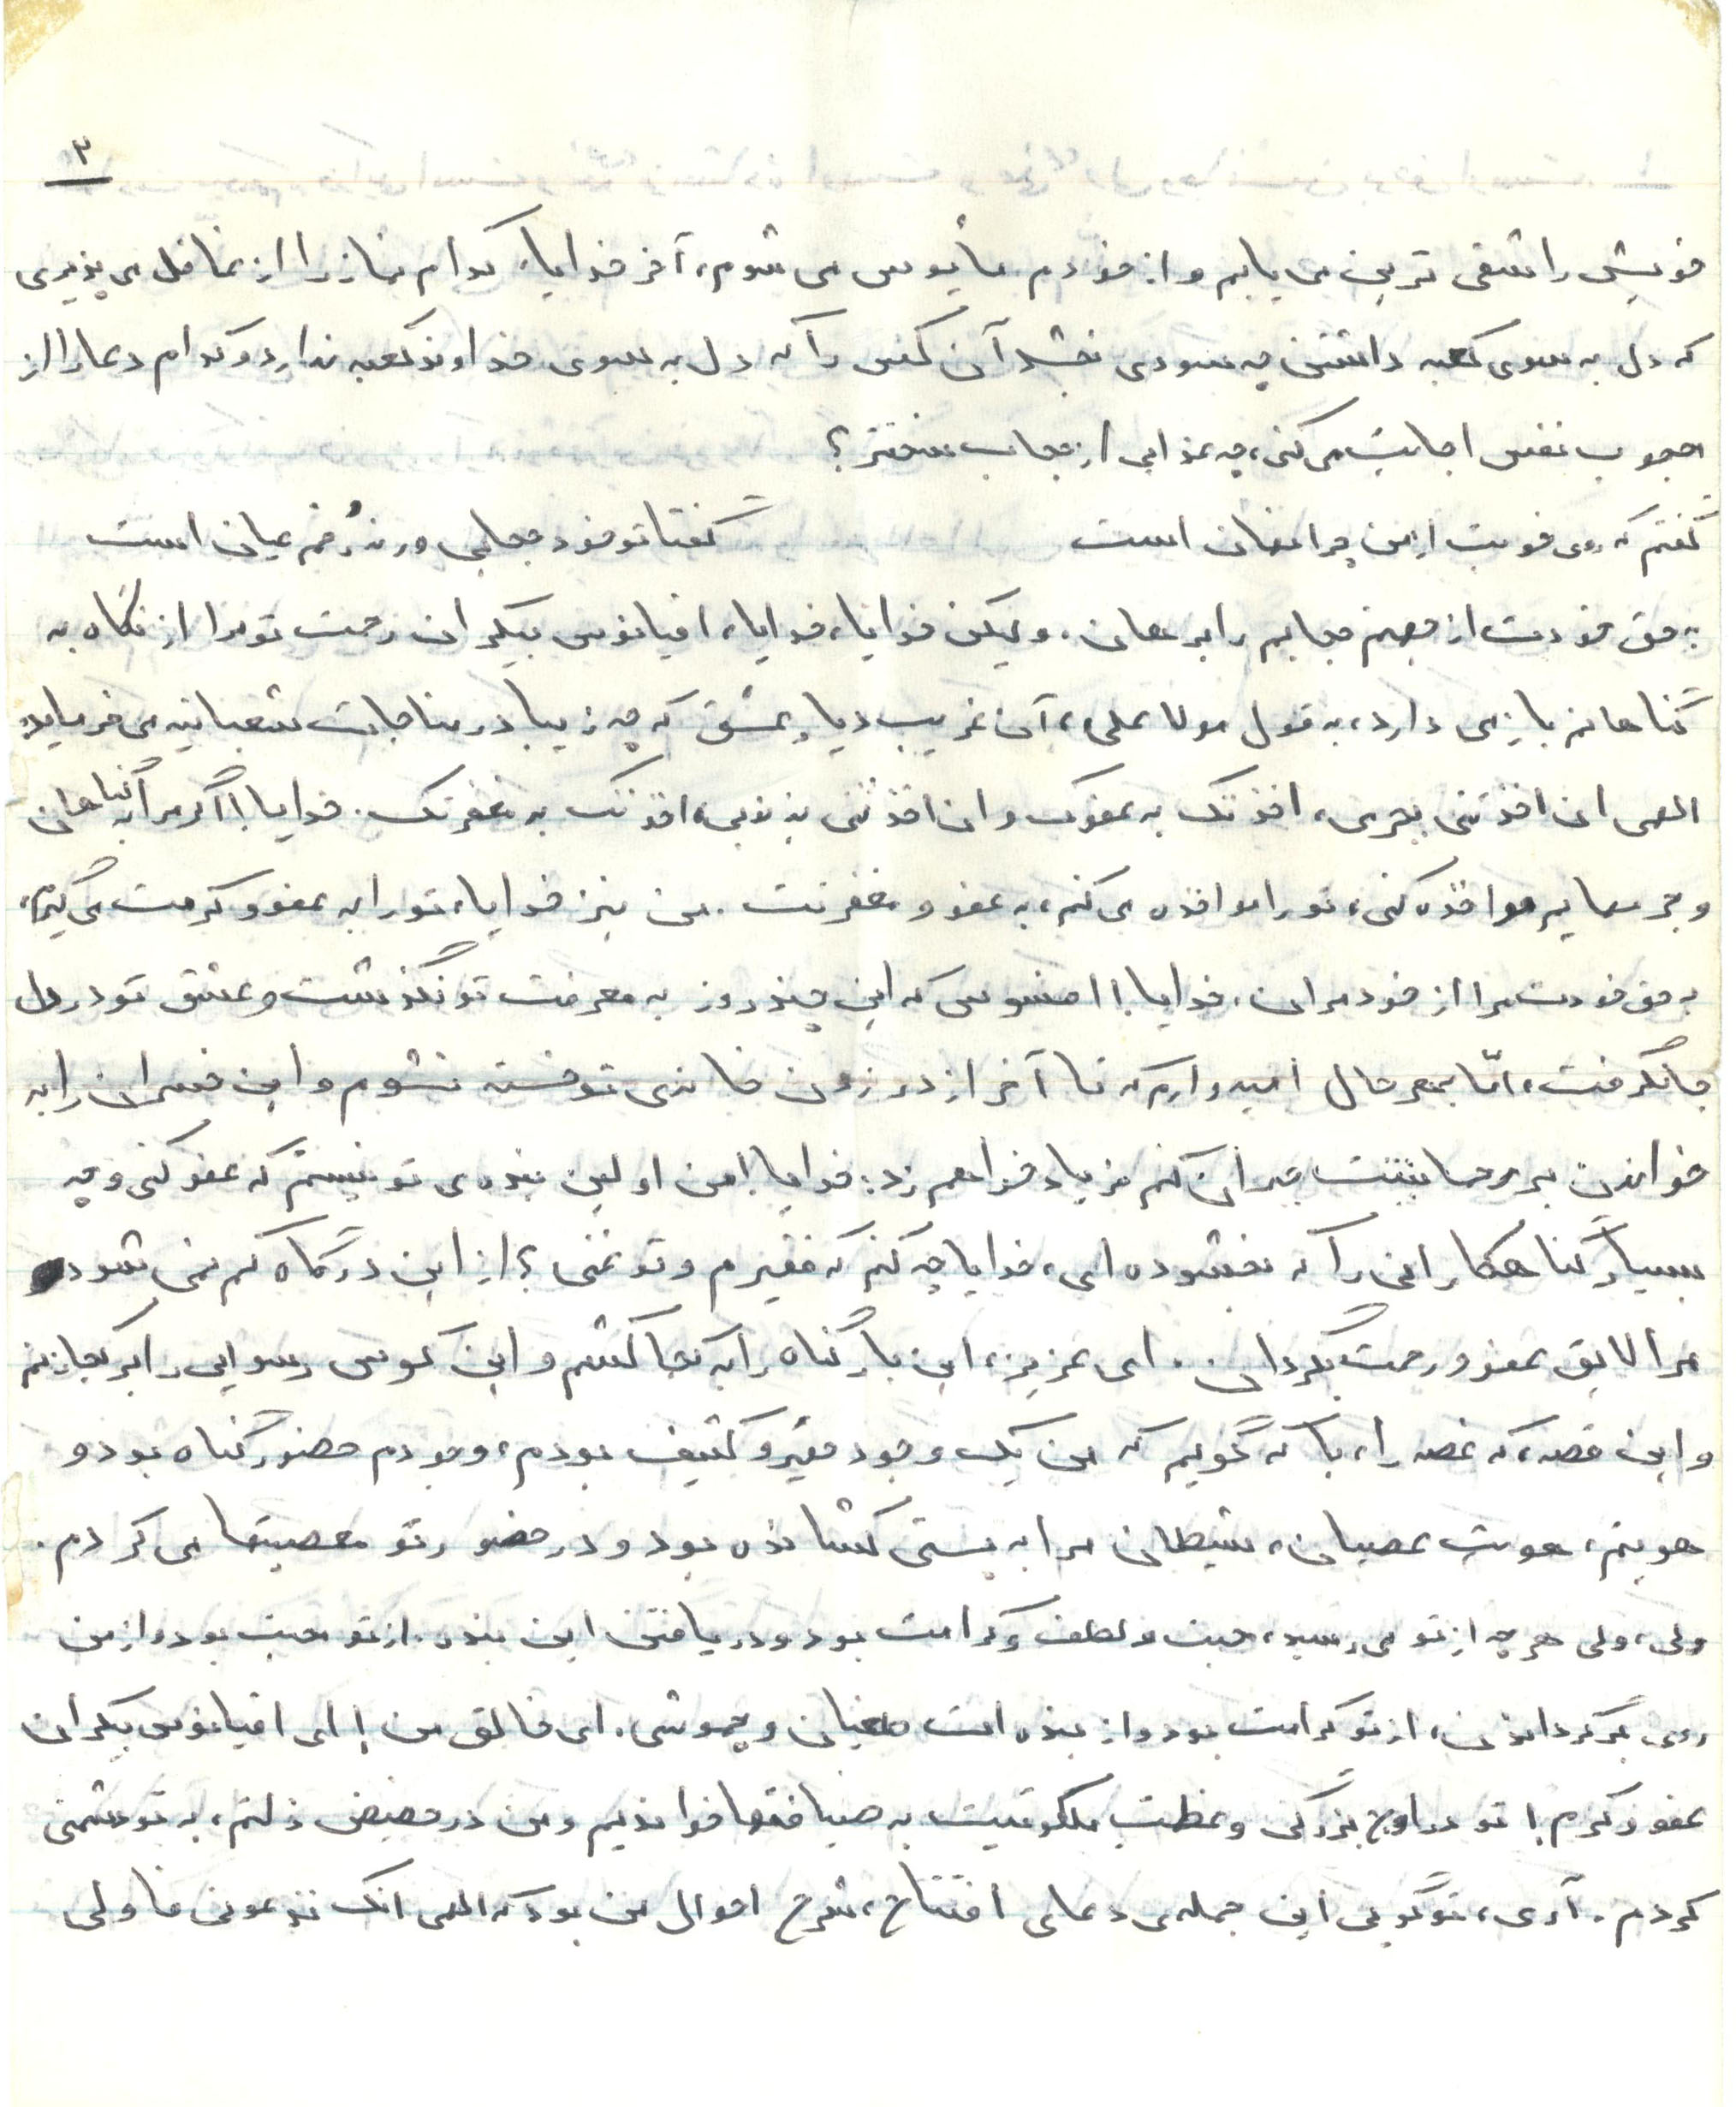 ۳
خویش را شقی ترین می یابم و از خودم مأیوس می شوم، آخر خدایا، کدام نماز را از غافل می پذیری
که دل به سوی کعبه داشتن چه سودی بخشد آن کس را که دل به سوی خداوند کعبه ندارد و کدام دعا را از
محجوب نفس اجابت می کنی، چه عذابی از حجاب سختتر؟
گفتم که روی خوبت از من چرا نهان است گفتا تو خود حجابی ورنه رُخم عیان است
به حق خودت از جهنم حجابم را برهان. ولیکن خدایا، خدایا، اقیانوس بیکران رحمت تو مرا از نگاه به
گناهانم باز می دارد، به قول مولا علی، آن غریب دیار عشق که چه زیبا در مناجات شعبانیه می فرماید
الهی ان اخذتنی بجرمی، اخذتک به عفوک و ان اخذتنی بذنوبی، اخذتک به مغفرتک. خدایا! اگر مرا به گناهان
و جرمهایم مواخذه کنی، تو را مواخذه می کنم، به عفو و مغفرتت. من نیز خدایا، تو را به عفو و کرمت می گیرم،
به حق خودت مرا از خود مران. خدایا! افسوس که این چند روز به معرفت تو نگذشت و عشق تو در دل
جا نگرفت، امّا بهر حال امیدوارم که تا آخر از در زدن خانه ی تو خسته نشوم و این خسران را به
خواندن بر رحمانیتت جبران کنم فریاد خواهم زد: خدایا! من اولین بنده ی تو نیستم که عفو کنی و چه
بسیار گناهکارانی را که بخشوده ای، خدایا چه کنم که فقیرم و تو غنی؟ از این درگاه کم نمی شود
مرا لایق عفو و رحمت بگردان. ای عزیز، این بار گناه را به کجا کشم و این کوس رسوایی را بر کجا زنم
و این قصه، که غصه را، با که گویم که من یک وجود حقیر و کثیف بودم، وجودم حضور گناه بود و
هویتم، هویت عصیان، شیطان مرا به پستی کشانده بود و در حضور تو معصیتها می کردم.
ولی، ولی هر چه از تو می رسید، محبت و لطف و کرامت بود و دریافتن این بنده. از تو محبت بود و از من
روی بر گرداندن، از تو کرامت بود و از بنده ات طغیان و چموشی. ای خالق من! ای اقیانوس بیکران
عفو و کرم! تو در اوج بزرگی و عظمت ملکوتیت به ضیافتها خواندیم و من در حضیض ذلتم، به تو دشمنی
کردم. آری، تو گویی این جمله ی دعای افتتاح، شرح احوال من بود که الهی انک تدعونی فاولی